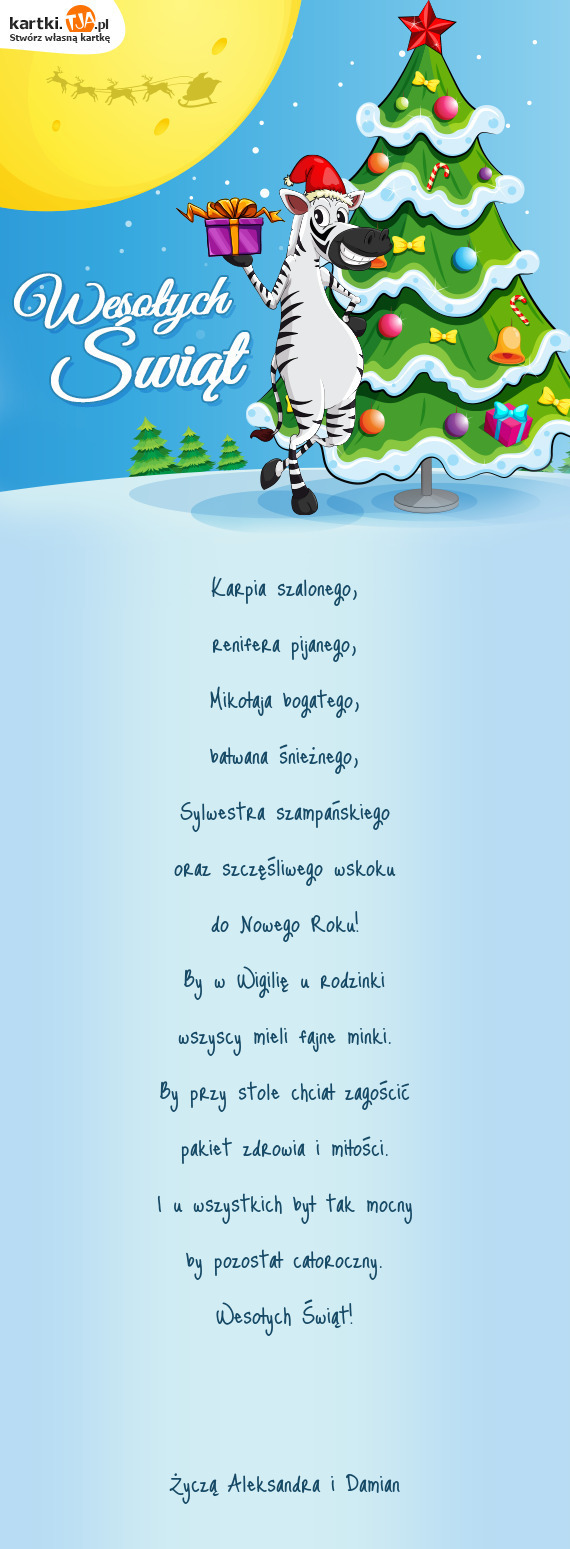 kartki.TJA.pl
Stwórz własną kartkę
Wesołych
Świąt
Karpia szalonego,
renifera pijanego,
Mikołaja bogatego,
bałwana śnieżnego,
Sylwestra szampańskiego
oraz szczęśliwego wskoku
do Nowego Roku!
By w Wigilię u rodzinki
wszyscy mieli fajne minki.
By przy stole chciał zagościć
pakiet zdrowia i miłości.
I u wszystkich był tak mocny
by pozostał całoroczny.
Wesołych Świąt!
Życzą Aleksandra i Damian